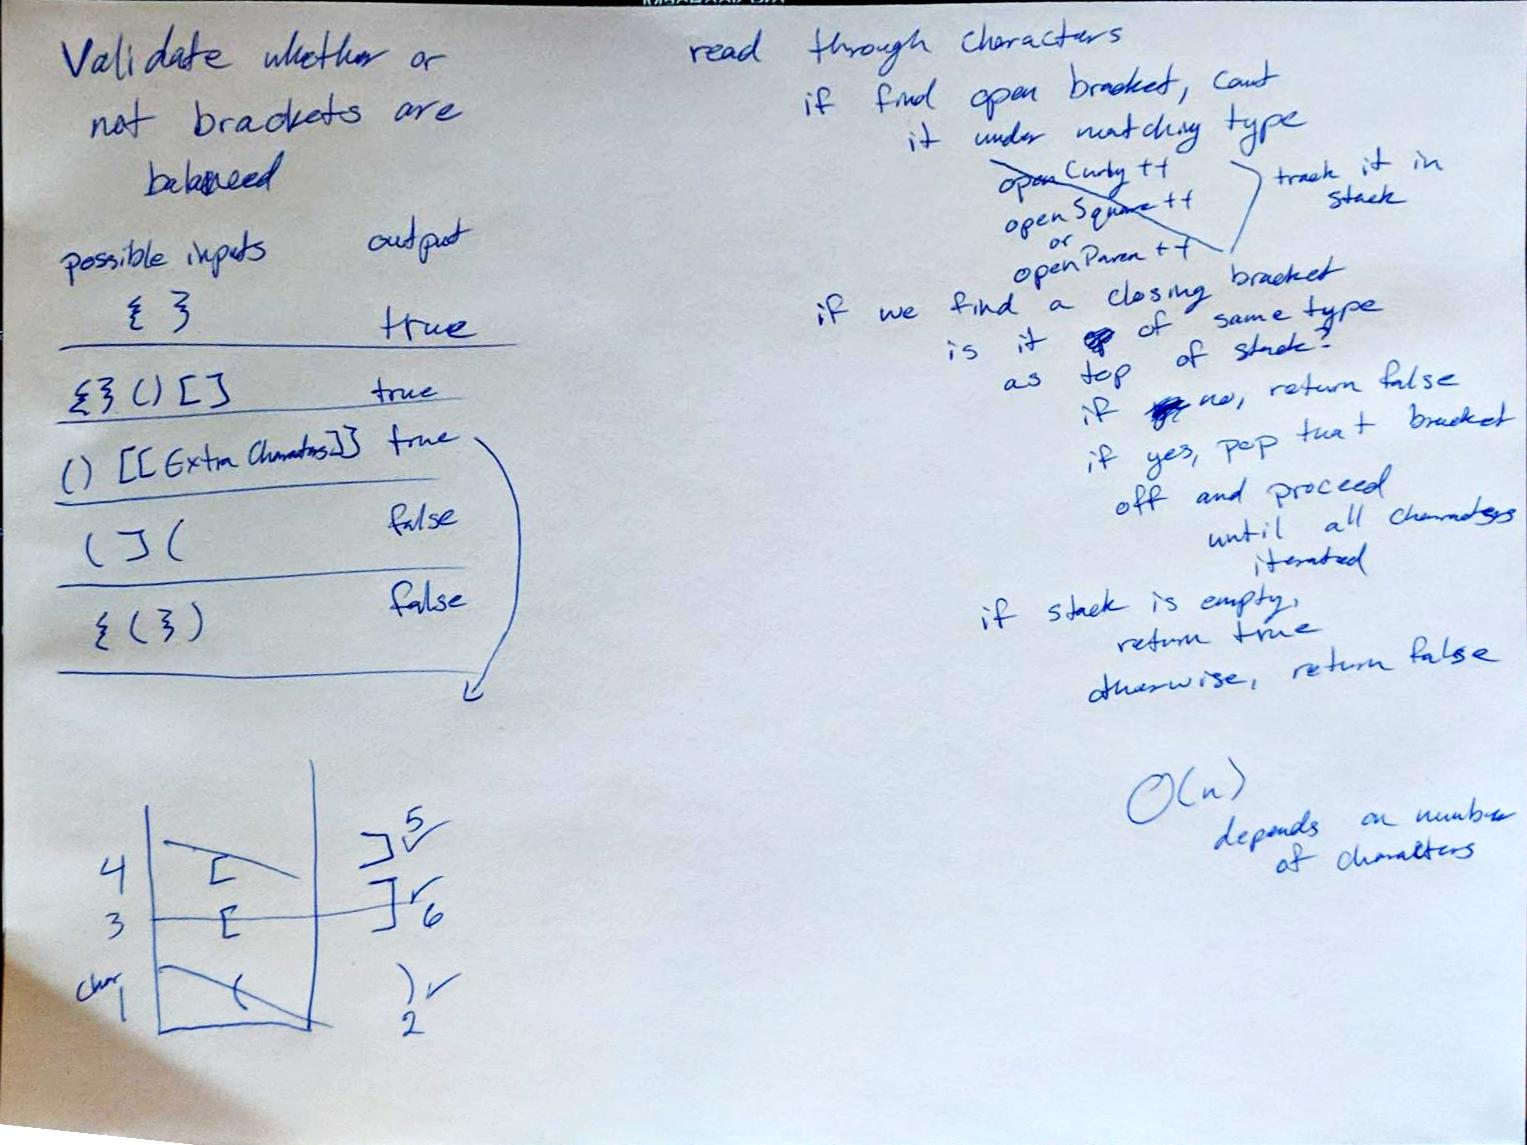 Validate whether or
not brackets are
balanced
possible inputs output
{ } true
{ } ( ) [ ] true
( ) [[ Extra Characters ]] true
( ] ( false
{ ( } ) false
4 [ ] 5 ✓
3 [ ] ✓ 6
char 1 ( ) ✓ 2
read through characters
if find open bracket, count
it under matching type
openCurly ++
openSquare ++
or
openParen ++
track it in
stack
if we find a closing bracket
is it of same type
as top of stack?
if no, return false
if yes, pop that bracket
off and proceed
until all characters
iterated
if stack is empty,
return true
otherwise, return false
O(n)
depends on number
of characters